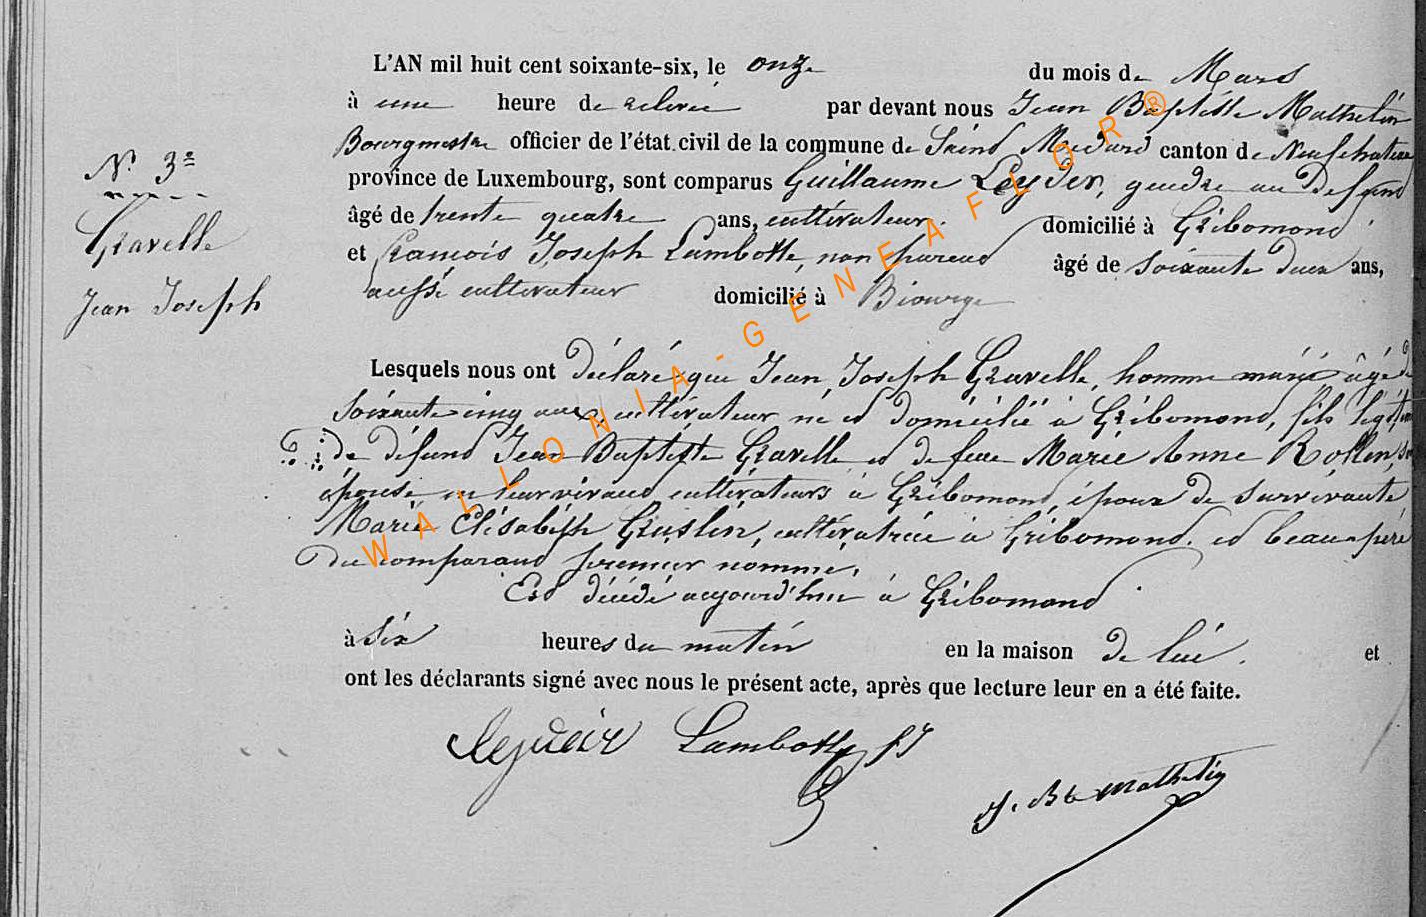 L'AN mil huit cent soixante-six, le onze du mois de Mars
à une heure de relevée par devant nous Jean Baptiste Mathelin
Bourgmestre officier de l'état civil de la commune de Saint Médard canton de Neufchateau
province de Luxembourg, sont comparus Guillaume Leyder, gendre au defunt
âgé de trente quatre ans, cultivateur domicilié à Gribomont
et François Joseph Lambotte, non parent âgé de soixante deux ans,
aussi cultivateur domicilié à Biourge
N° 3e
Gravelle
Jean Joseph
Lesquels nous ont déclaré que Jean Joseph Gravelle, homme marié âgé de
soixante cinq ans, cultivateur né et domicilié à Gribomont, fils légitime
de défunt Jean Baptiste Gravelle et de feue Marie Anne
épouse, en leur vivant cultivateurs à Gribomont, époux de survivante
Marie Elisabeth Guslin, cultivatrice à Gribomont. et beau-père
du comparant premier nommé,
Est décédé aujourd'hui à Gribomont
à six heures du matin en la maison de lui. et
ont les déclarants signé avec nous le présent acte, après que lecture leur en a été faite.
Lambotte fJ
J. Bte Mathelin
WALLONIA-GENEAFLOR®